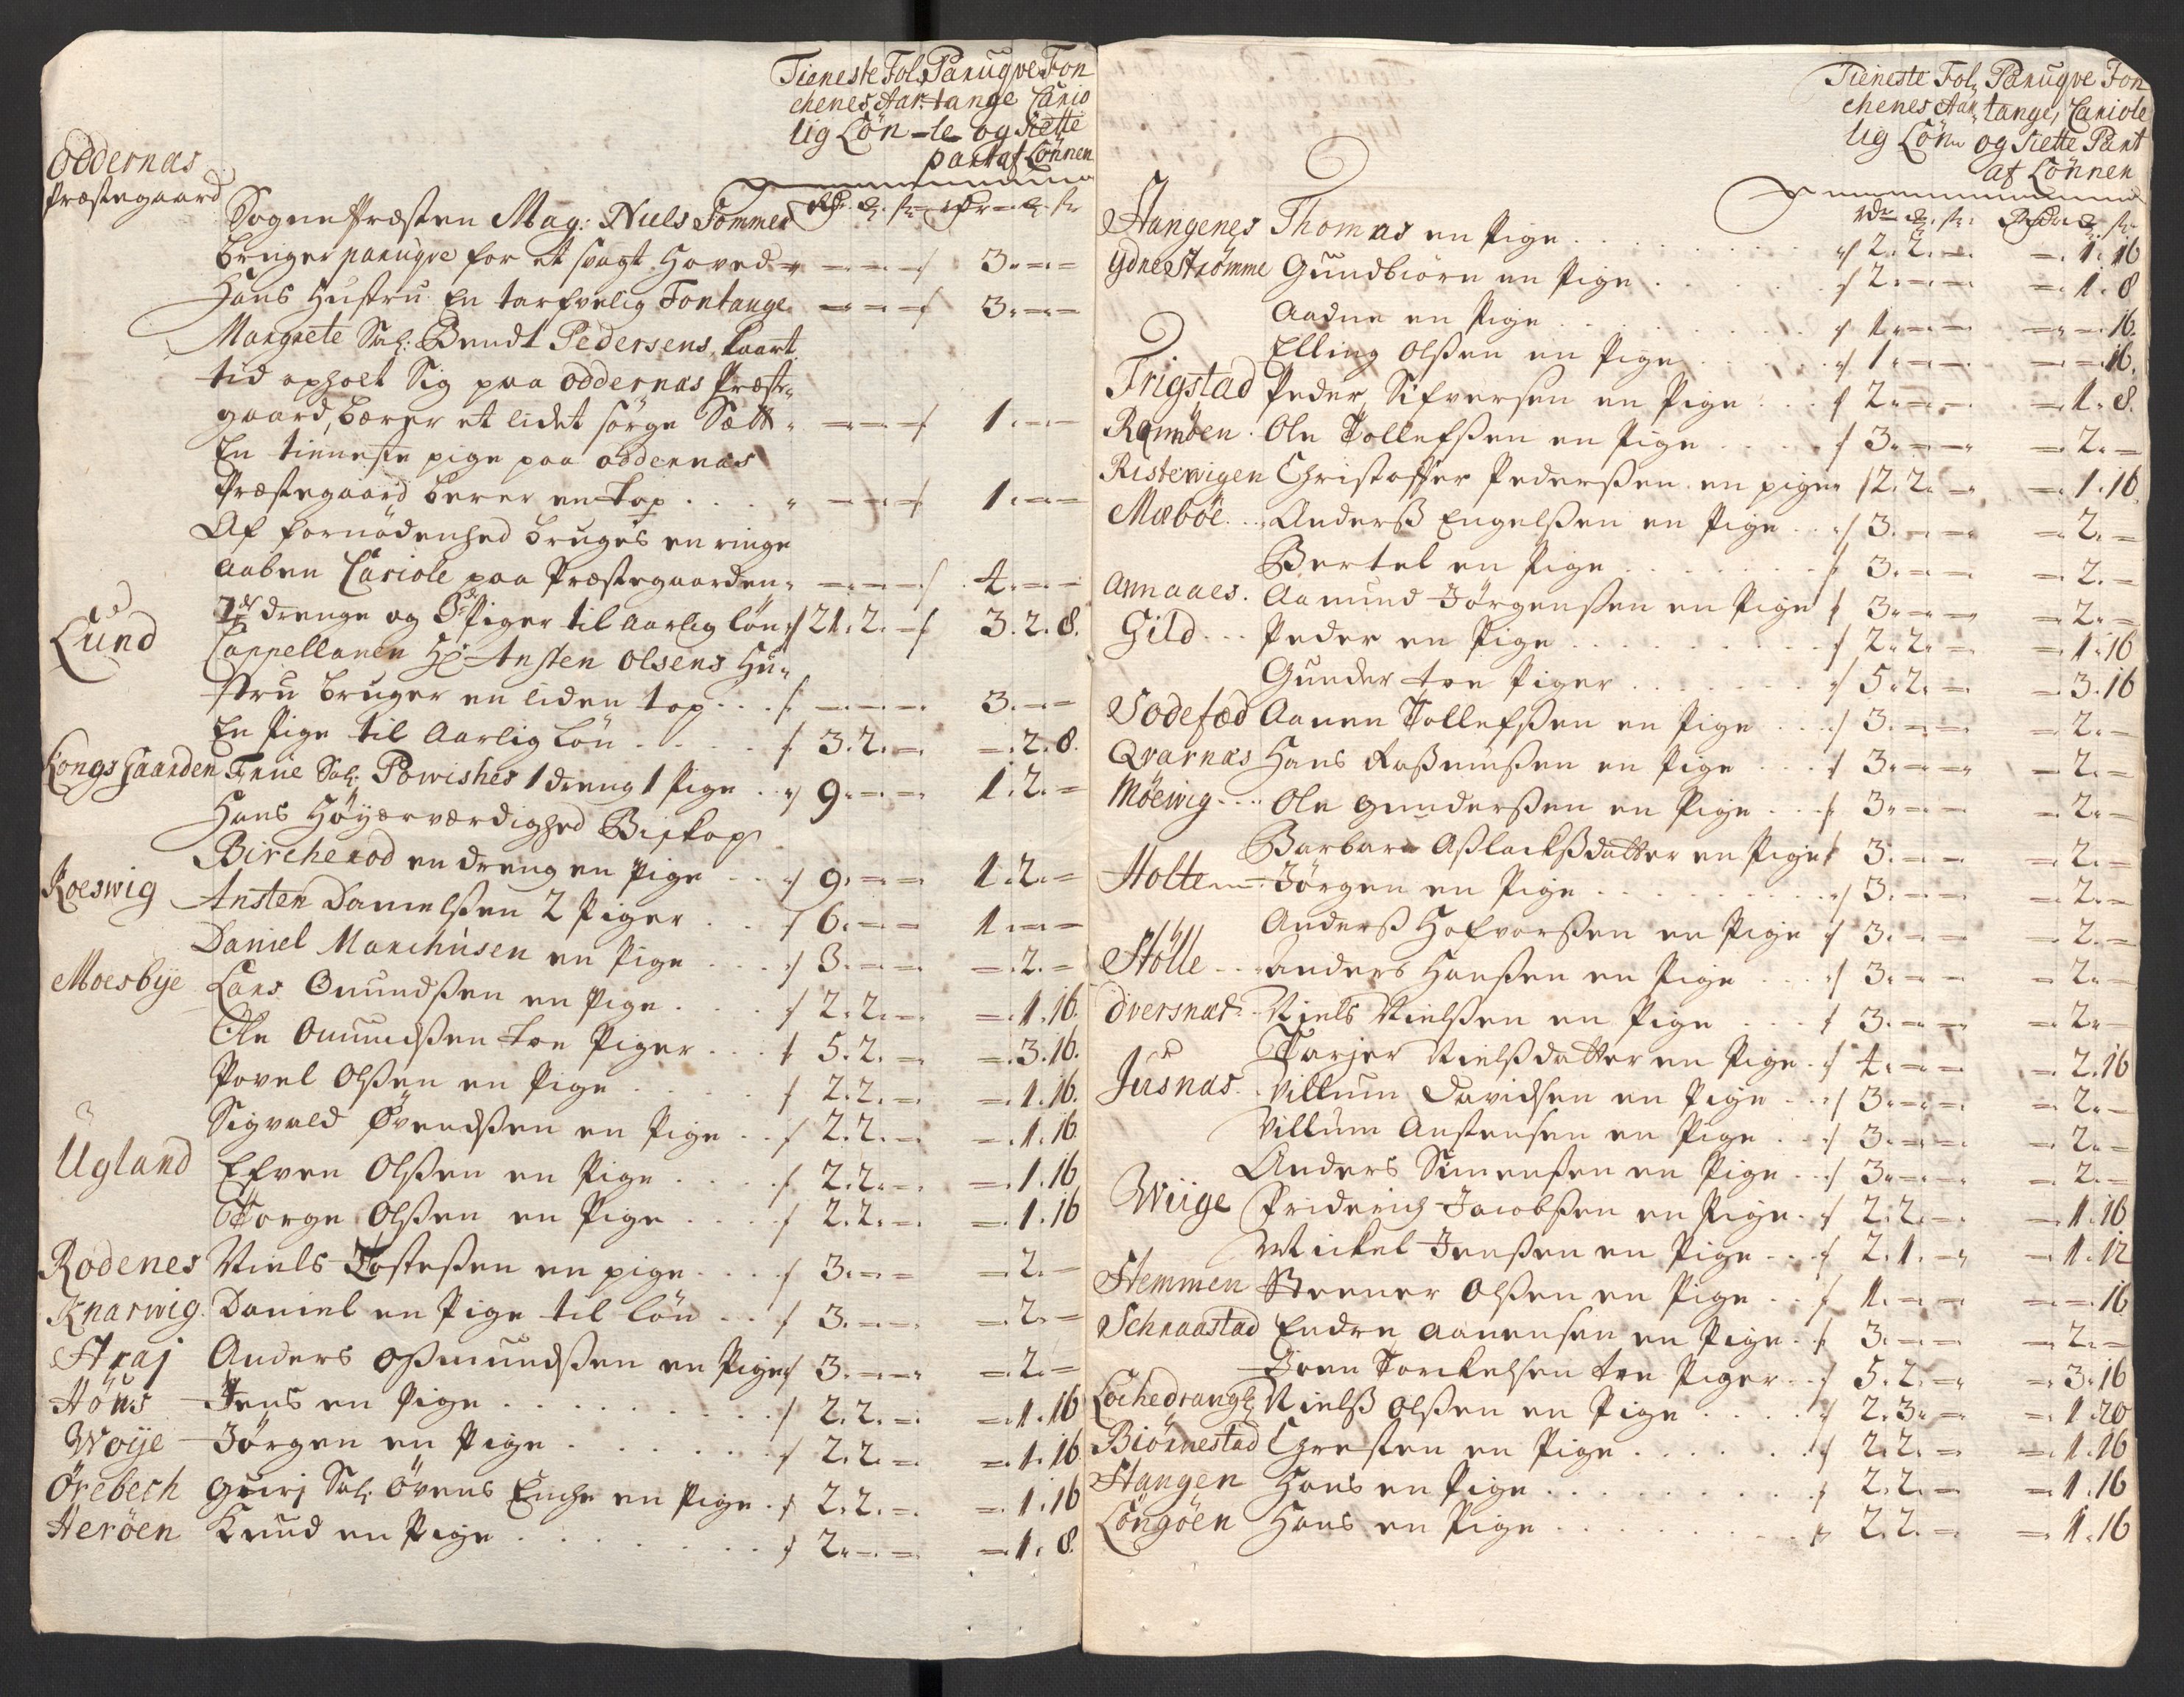 Tieneste Fol Paruqve Fon
chenes Aar tange Cario
lig Lön le og Siette
part af Lönnen
Oddernæs
Præstegaard
Sogne Præsten Mag: Niels Tommes
bruger paruqve for et svagt hoved 3.
Hans Hustru En tarfvelig Fontange 3.
Margrete Sal: Bendt Pedersens, kaart
tid opholt Sig paa oddernæs Præste
gaard, bærer et lidet sörge Sætt 1.
En tieneste pige paa oddernæs
Præstegaard berer en top 1.
Af fornödenhed bruges en ringe
aaben Cariole paa Præstegaarden 4.
drenge og Piger til aarlig lön 21. 2. 3. 2. 8.
Lund Cappellanen Hr Ansten Olsens Hu-
stru bruger en liden top 3.
En Pige til Aarlig Lön 3. 2. 2. 8.
Kongs Gaarden Frue Sal: Powishes 1 dreng 1 Pige 9. 1. 2.
Hans Höyærværdighed Biskop
Bircherod en dreng en Pige 9. 1. 2.
Roeswig Ansten Danielßen 2 Piger 6. 1.
Daniel Marchusen en Pige 3. 2.
Moesbye Lars Omundßen en Pige 2. 2. 1. 16.
Ole Omundßen tre Piger 5. 2. 3. 16.
Povel Olßen en Pige 2. 2. 1. 16.
Sigvald Øvendßen en Pige 2. 2. 1. 16.
Ugland Efven Olßen en Pige 2. 2. 1. 16
Torge Olßen en Pige 2. 2. 1. 16
Rodenes Niels Tosteßen en pige 3. 2.
Knarwig Daniel en Pige til lön 3. 2.
Straj Anders Oßmundßen en Pige 3. 2.
Höns Jens en Pige 2. 2. 1. 16
Woije Jörgen en Pige 2. 2. 1. 16
Örebech Gurj Sal: Övens Enche en Pige 2. 2. 1. 16
Heröen Knud en Pige 2. 1. 8.
Tieneste Fol Paruqve Fon
chenes Aar tange, Cariole
lig Lön og Siette Part
af Lönnen
Stangenes Thomas en Pige 2. 2. 1. 16
Ydre Strömme Gundbiörn en Pige 2. 1. 8
Aadne en Pige 1. 16.
Elling Olßen en Pige 1. 16.
Frigstad Peder Sifversen en Pige 2. 1. 8.
Ramöen Ole Tollefßen en Pige 3. 2.
Ristewigen Christoffer Pederßen en pige 2. 2. 1. 16.
Mæböe Anderß Engelßen en Pige 3. 2.
Bertel en Pige 3. 2.
Annaaes Aamund Jörgenßen en Pige 3. 2.
Gild Peder en Pige 2. 2. 1. 16
Gunder tre Piger 5. 2. 3. 16
Sodefæd Aanen Tollefßen en Pige 3. 2.
Qvarnæs Hans Raßmußen en Pige 3. 2.
Möewig Ole Gunderßen en Pige 3. 2.
Barbara Aßlackßdatter en Pige 3. 2.
Holte Jörgen en Pige 3. 2.
Anderß Hofvorßen en Pige 3. 2.
Stölle Anders Hanßen en Pige 3. 2.
Oversnæs Niels Nielßen en Pige 3. 2.
Tarjer Nielßdatter en Pige 4. 2. 16
Jusnæs Villum Davidsen en Pige 3. 2.
Villum Anstensen en Pige 3. 2.
Anders Simenßen en Pige 3. 2.
Wiige Friderich Jacobßen en Pige 2. 2. 1. 16
Mickel Jenßen en Pige 2. 1. 1. 12
Stemmen Steener Olßen en Pige 1. 16
Schraastad Endre Aanensen en Pige 3. 2.
Joen Torckelsen tre Piger 5. 2. 3. 16
Lochedrangs Nielß Olßen en Pige 2. 3. 1. 20
Biörnestad Chresten en Pige 2. 2. 1. 16
Stangen Hans en Pige 2. 2. 1. 16
Löngöen Hans en Pige 2. 2. 1. 16